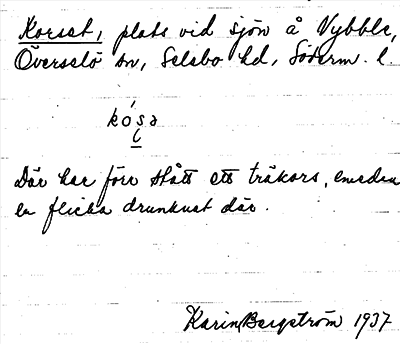 Korset, plats vid sjön å Vybble,
Överselö sn, Selebo hd, Söderm. l.
kó̱sa
Där har förr stått ett träkors, emedan
en flicka drunknat där.
Karin Bergström 1937